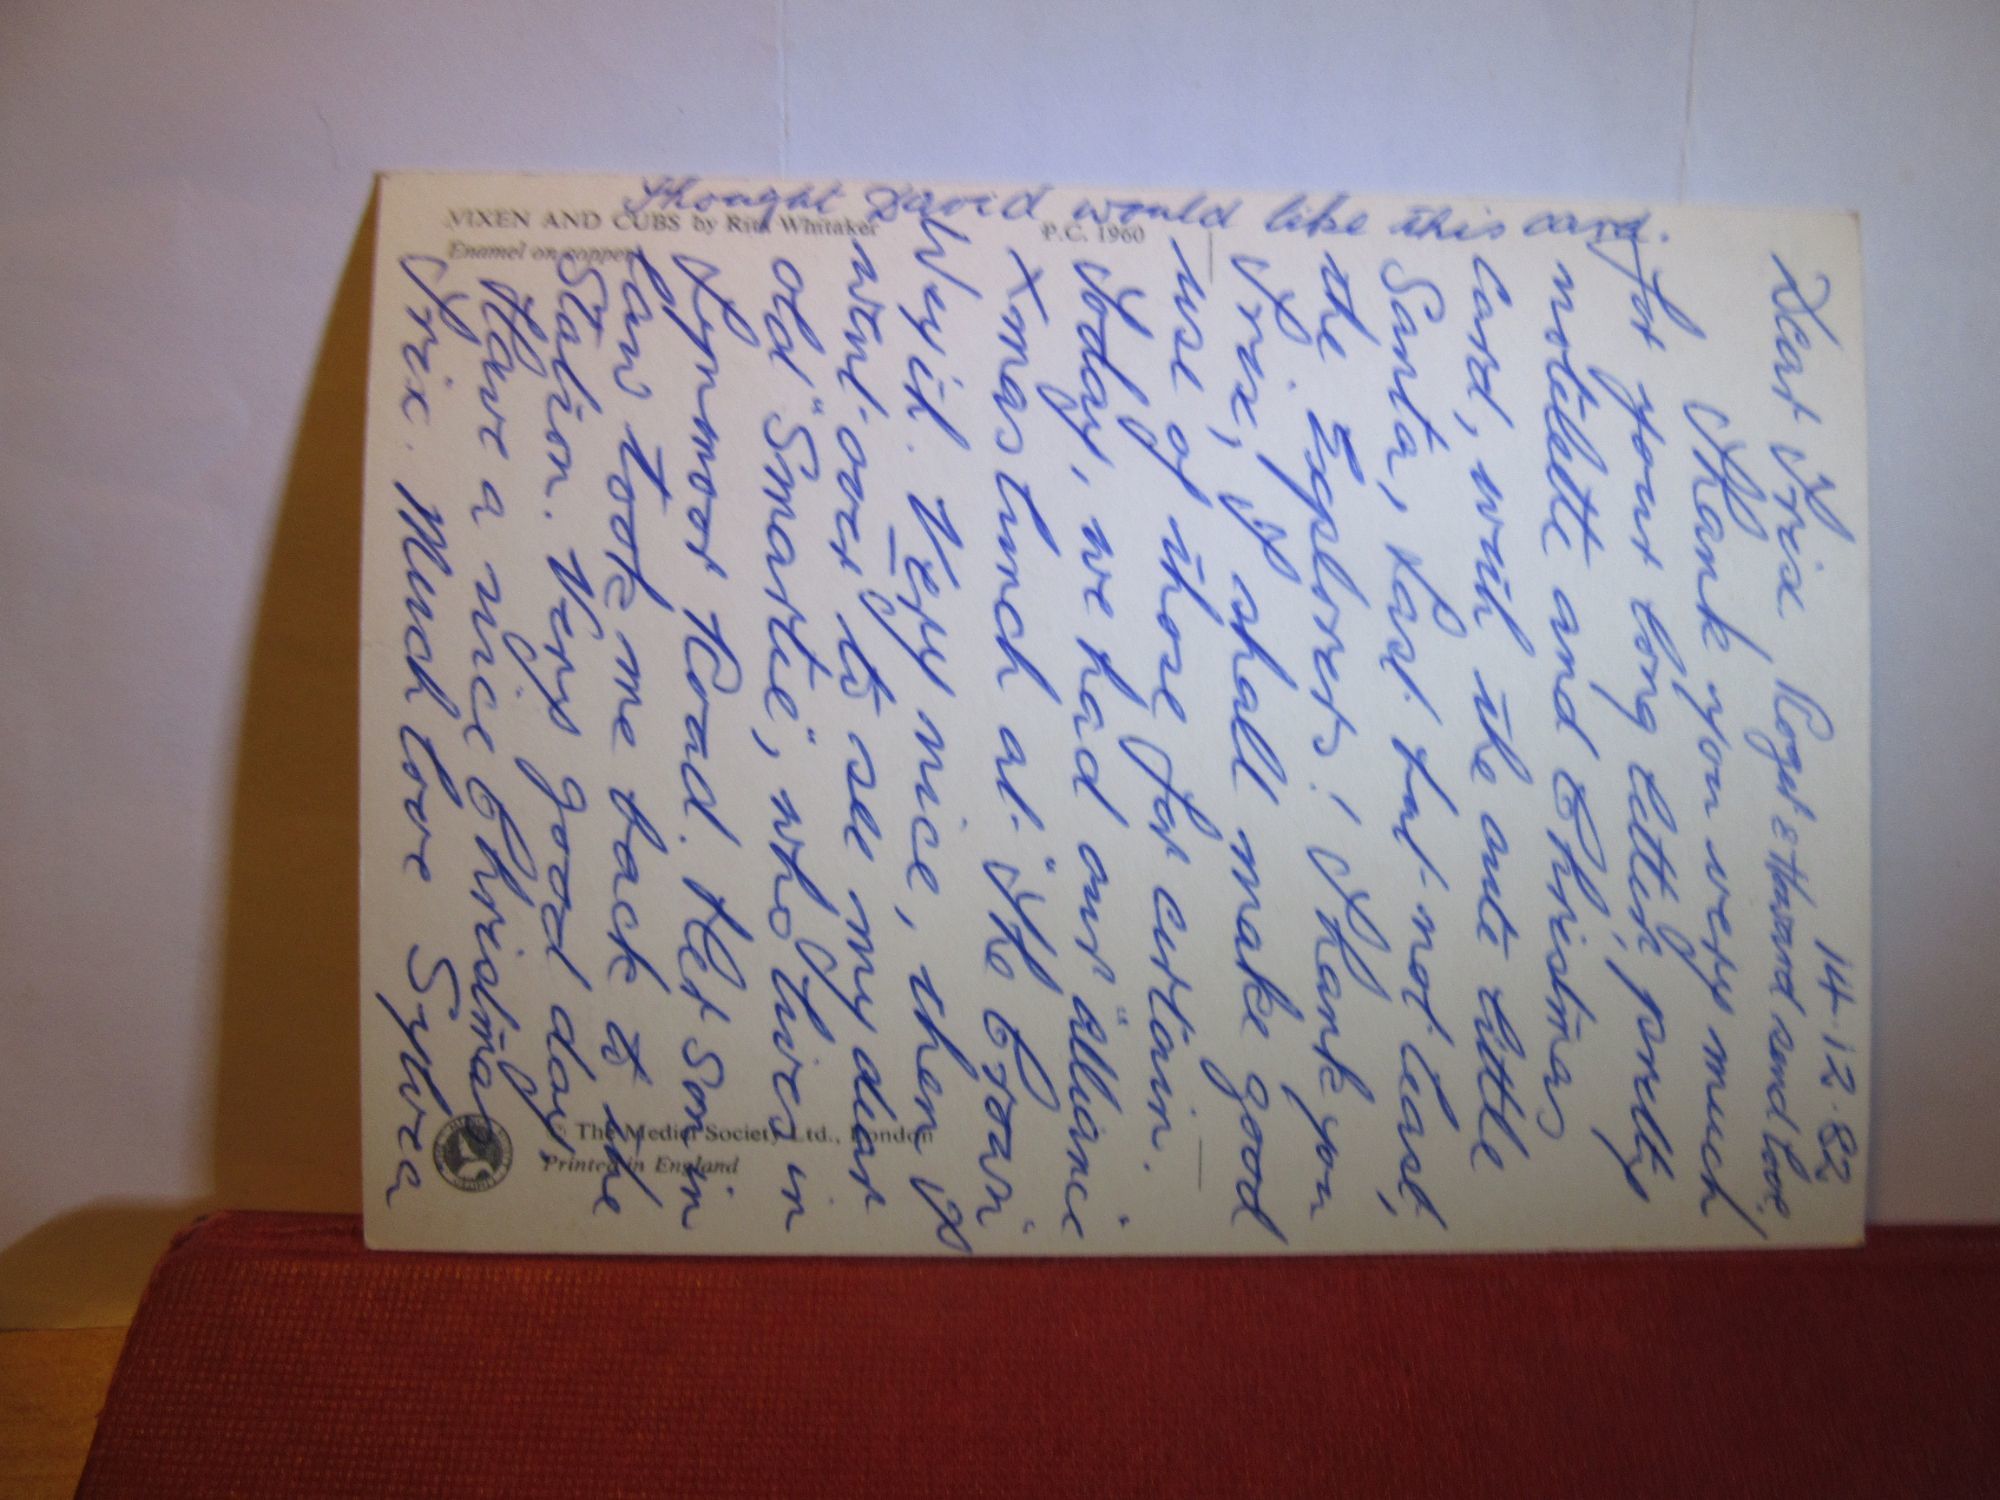 Thought David would like this card.
VIXEN AND CUBS by Rita Whitaker
Enamel on copper
P.C. 1960
14.12.82
Roger & Howard send love
Dear Trix
Thank you very much
for your long letter, pretty
notelette and Christmas
Card, with the cute little
Santa, last but not least,
the Explorers! Thank you
Trix, I shall make good
use of those for certain.
Today, we had our "Alliance"
Xmas lunch at "The Crown"
Weyil. Very nice, then I
went over to see my dear
old "Smartie", who lives in
Lynmoor Road. Her Son in
Law took me back to the
Station. Very good day,
Have a nice Christmas
Trix. Much love Sylvia
© The Medici Society Ltd., London
Printed in England